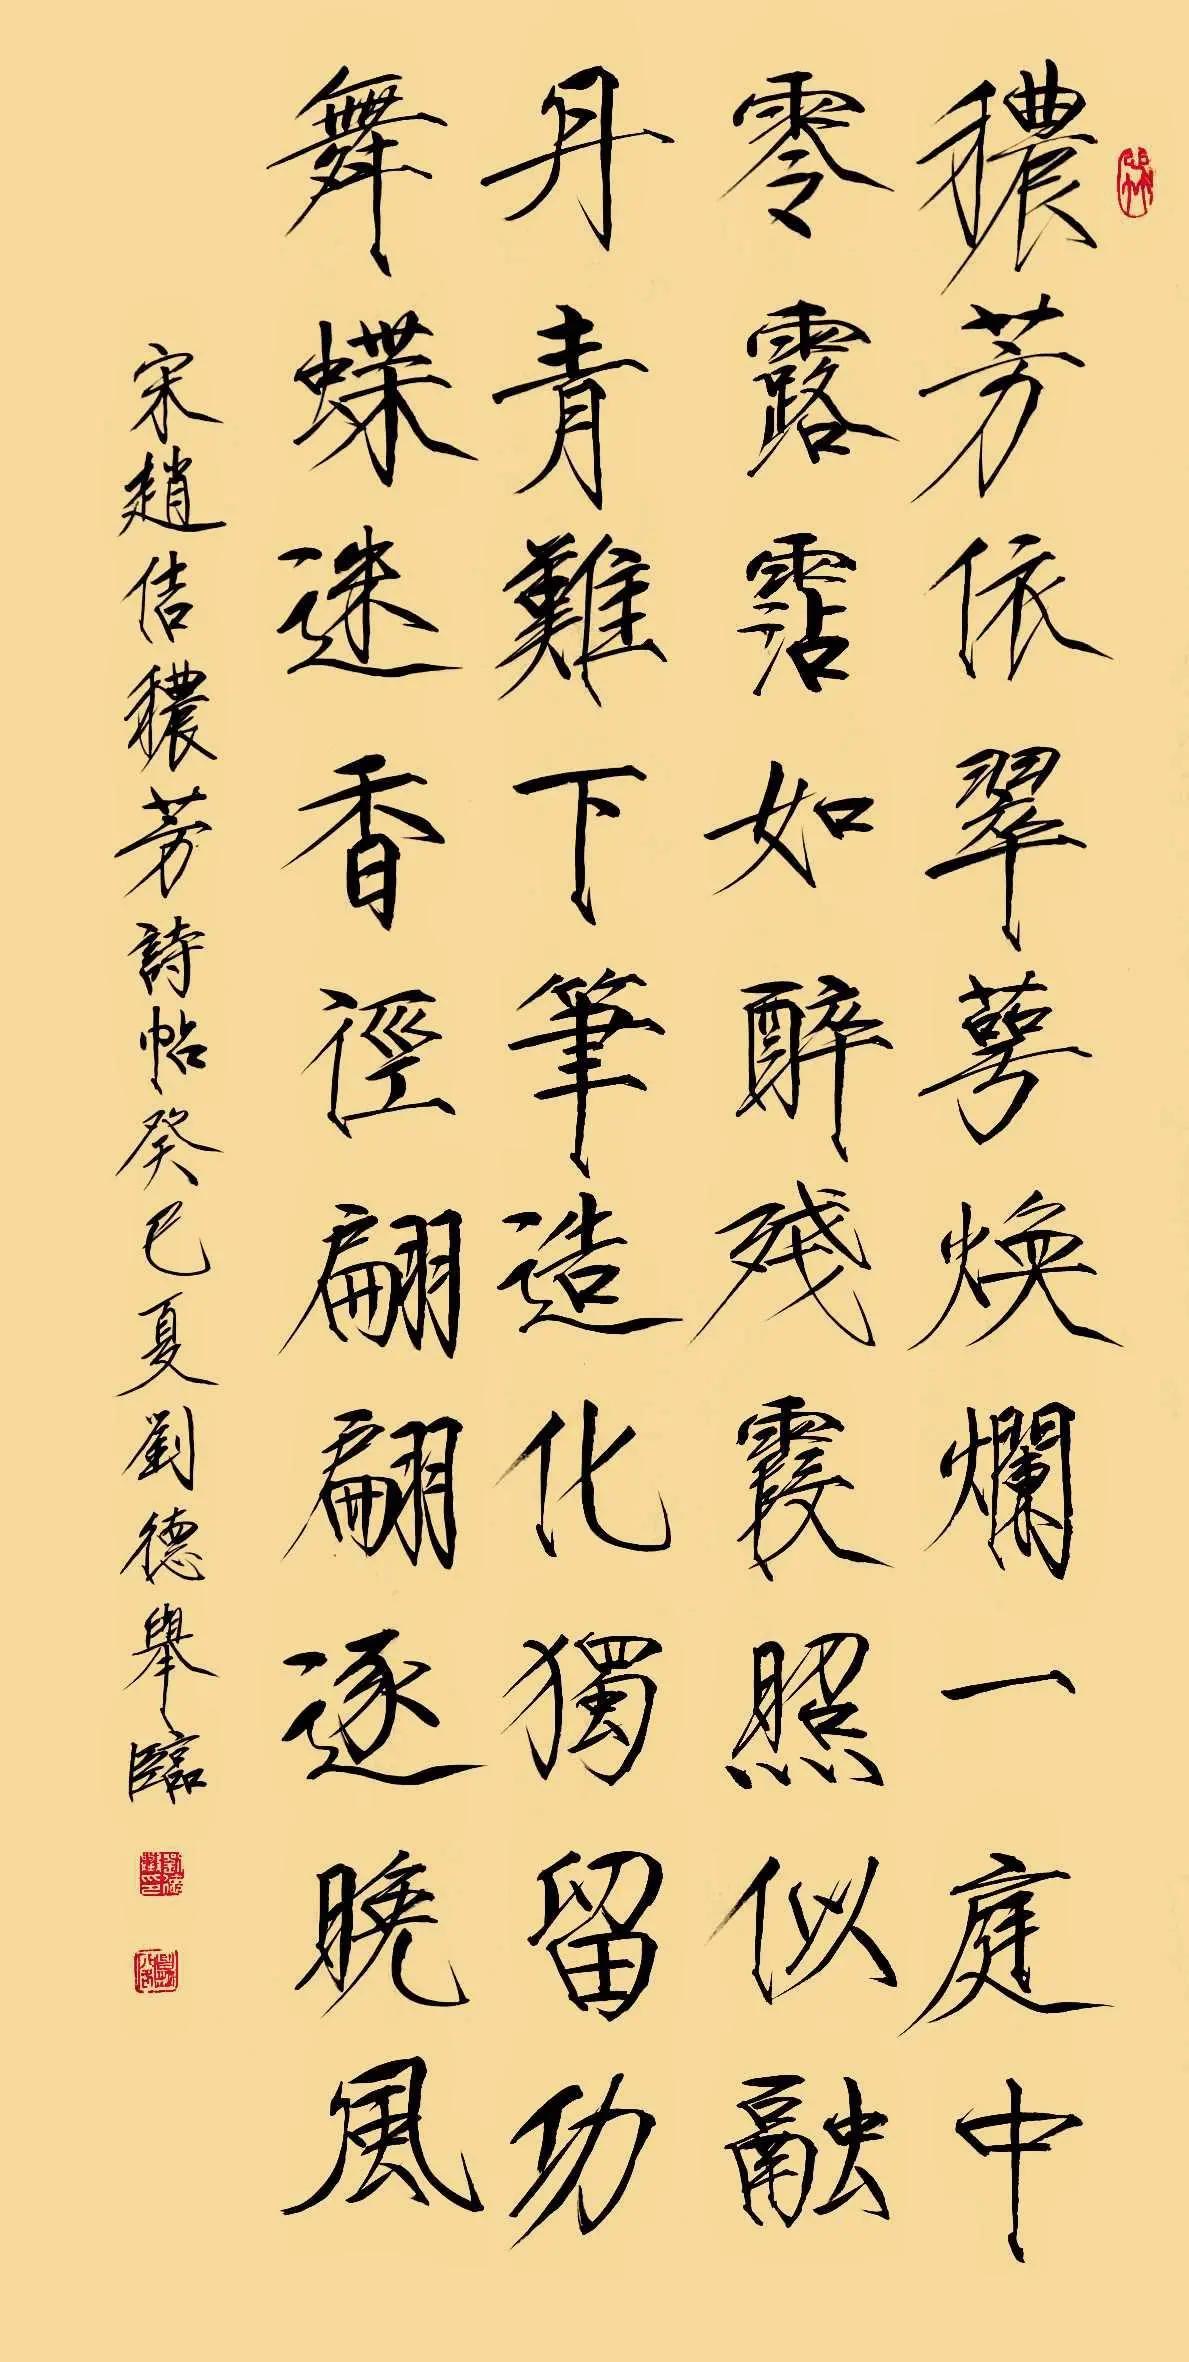 穠芳依翠萼煥爛一庭中
零露霑如醉殘霞照似融
丹青難下筆造化獨留功
舞蝶迷香徑翩翩逐晚風
宋趙佶穠芳詩帖癸巳夏劉德舉臨